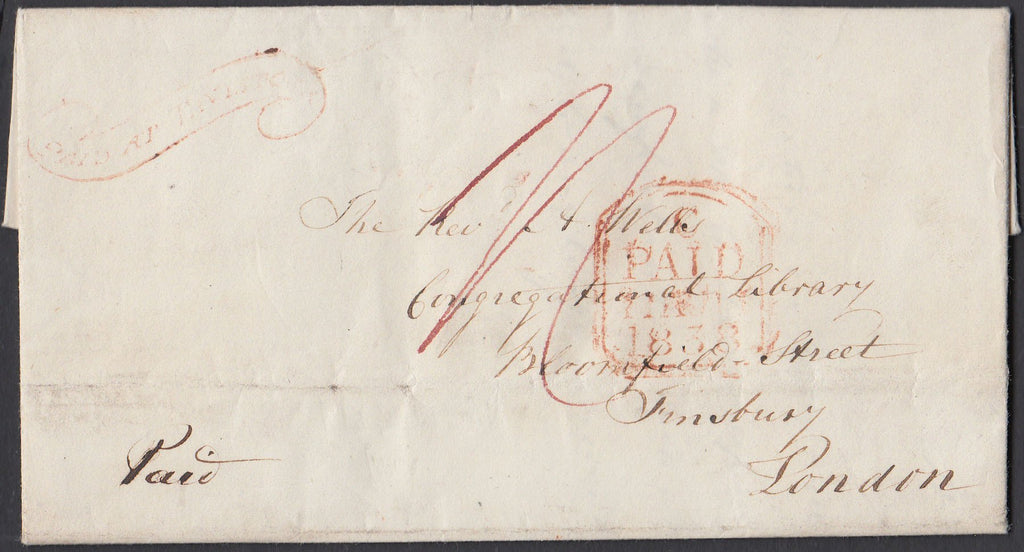 PAID AT
The Rev.d A. Wells
Congregational Library
Bloomfield Street
Finsbury
London
Paid
C
PAID
1838